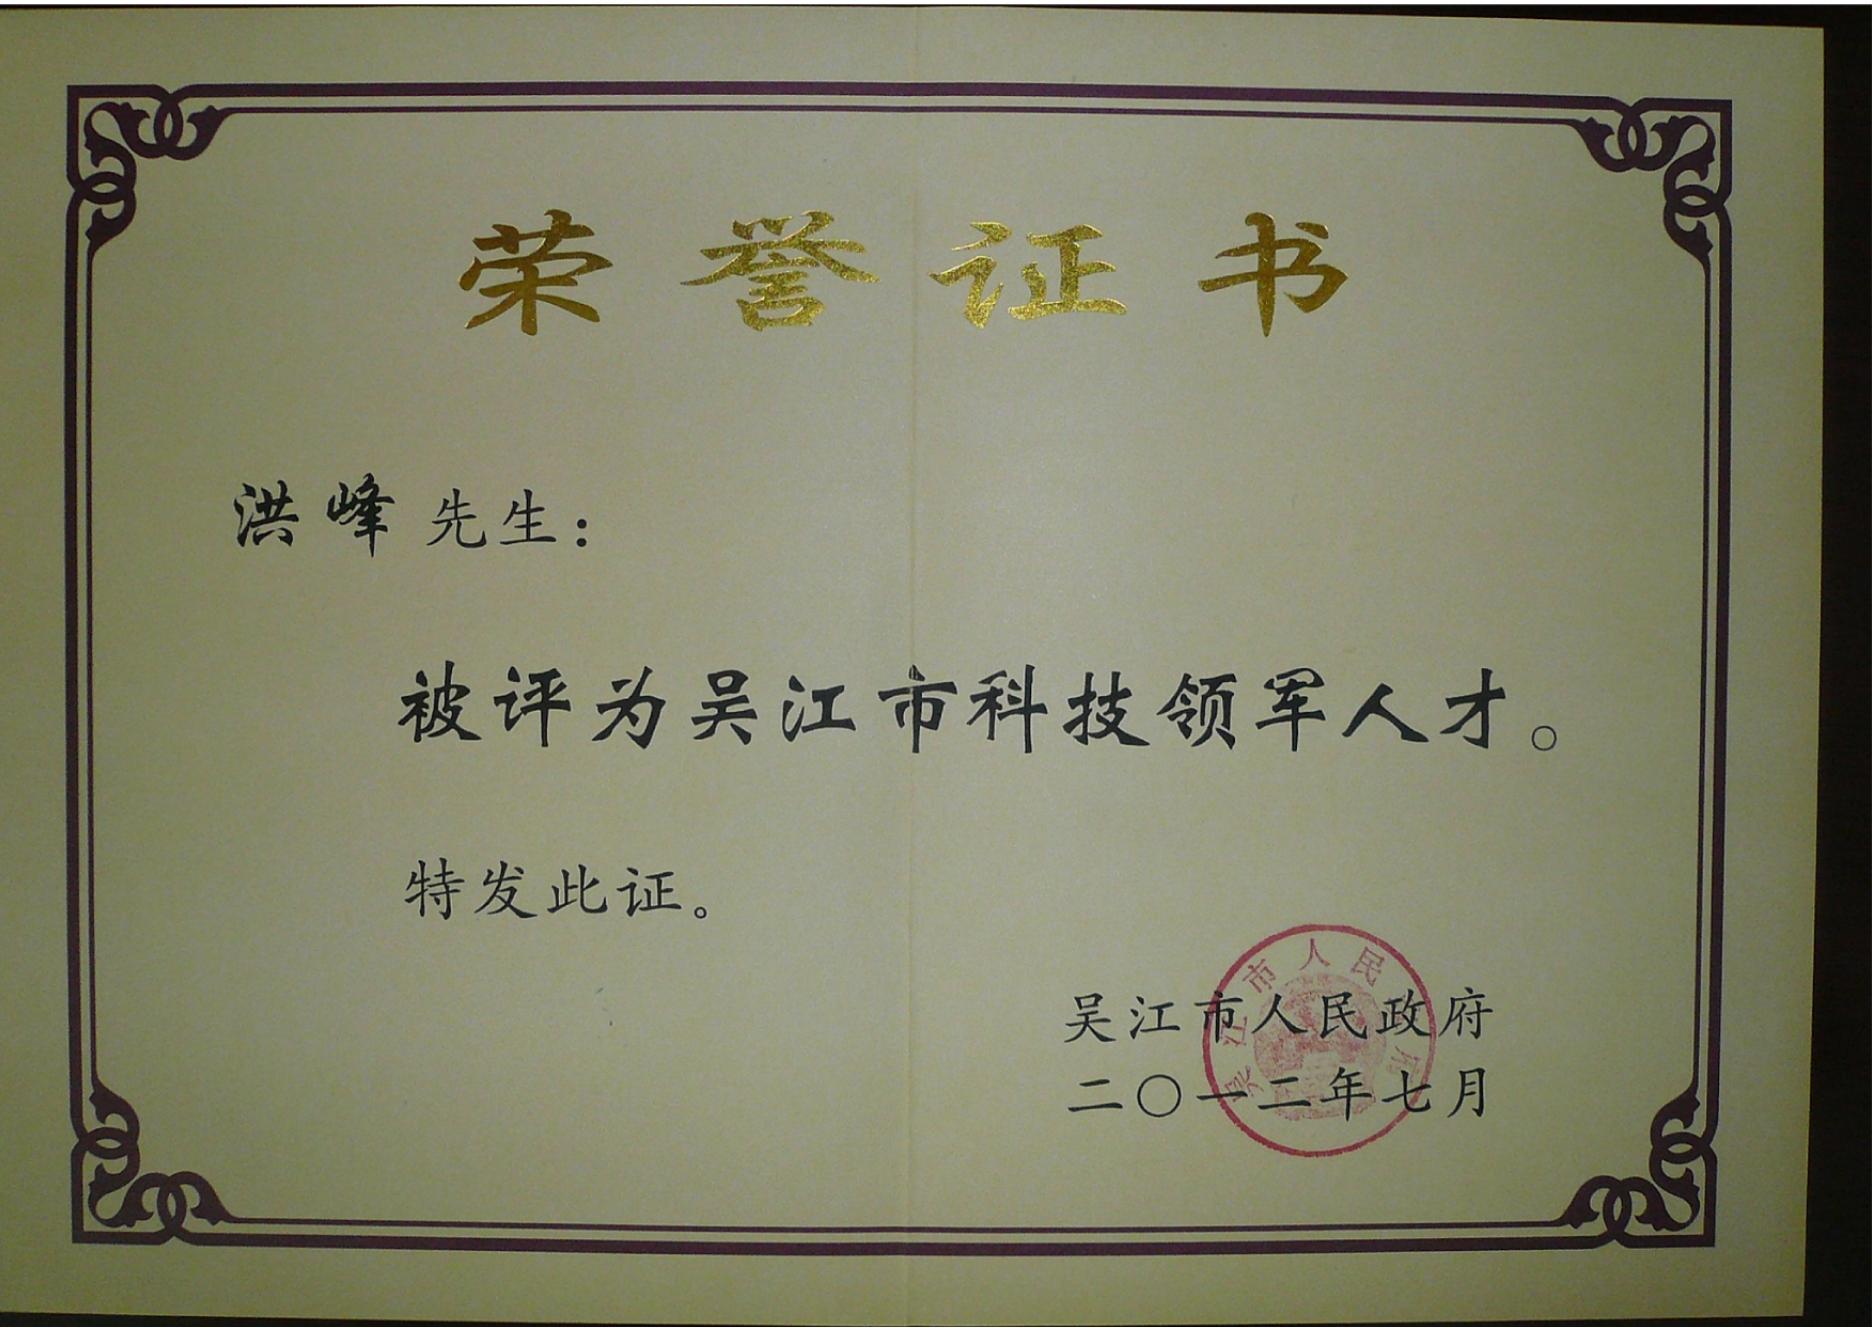 荣誉证书
洪峰 先生：
被评为吴江市科技领军人才。
特发此证。
吴江市人民政府
二〇一二年七月
吴江市人民 府